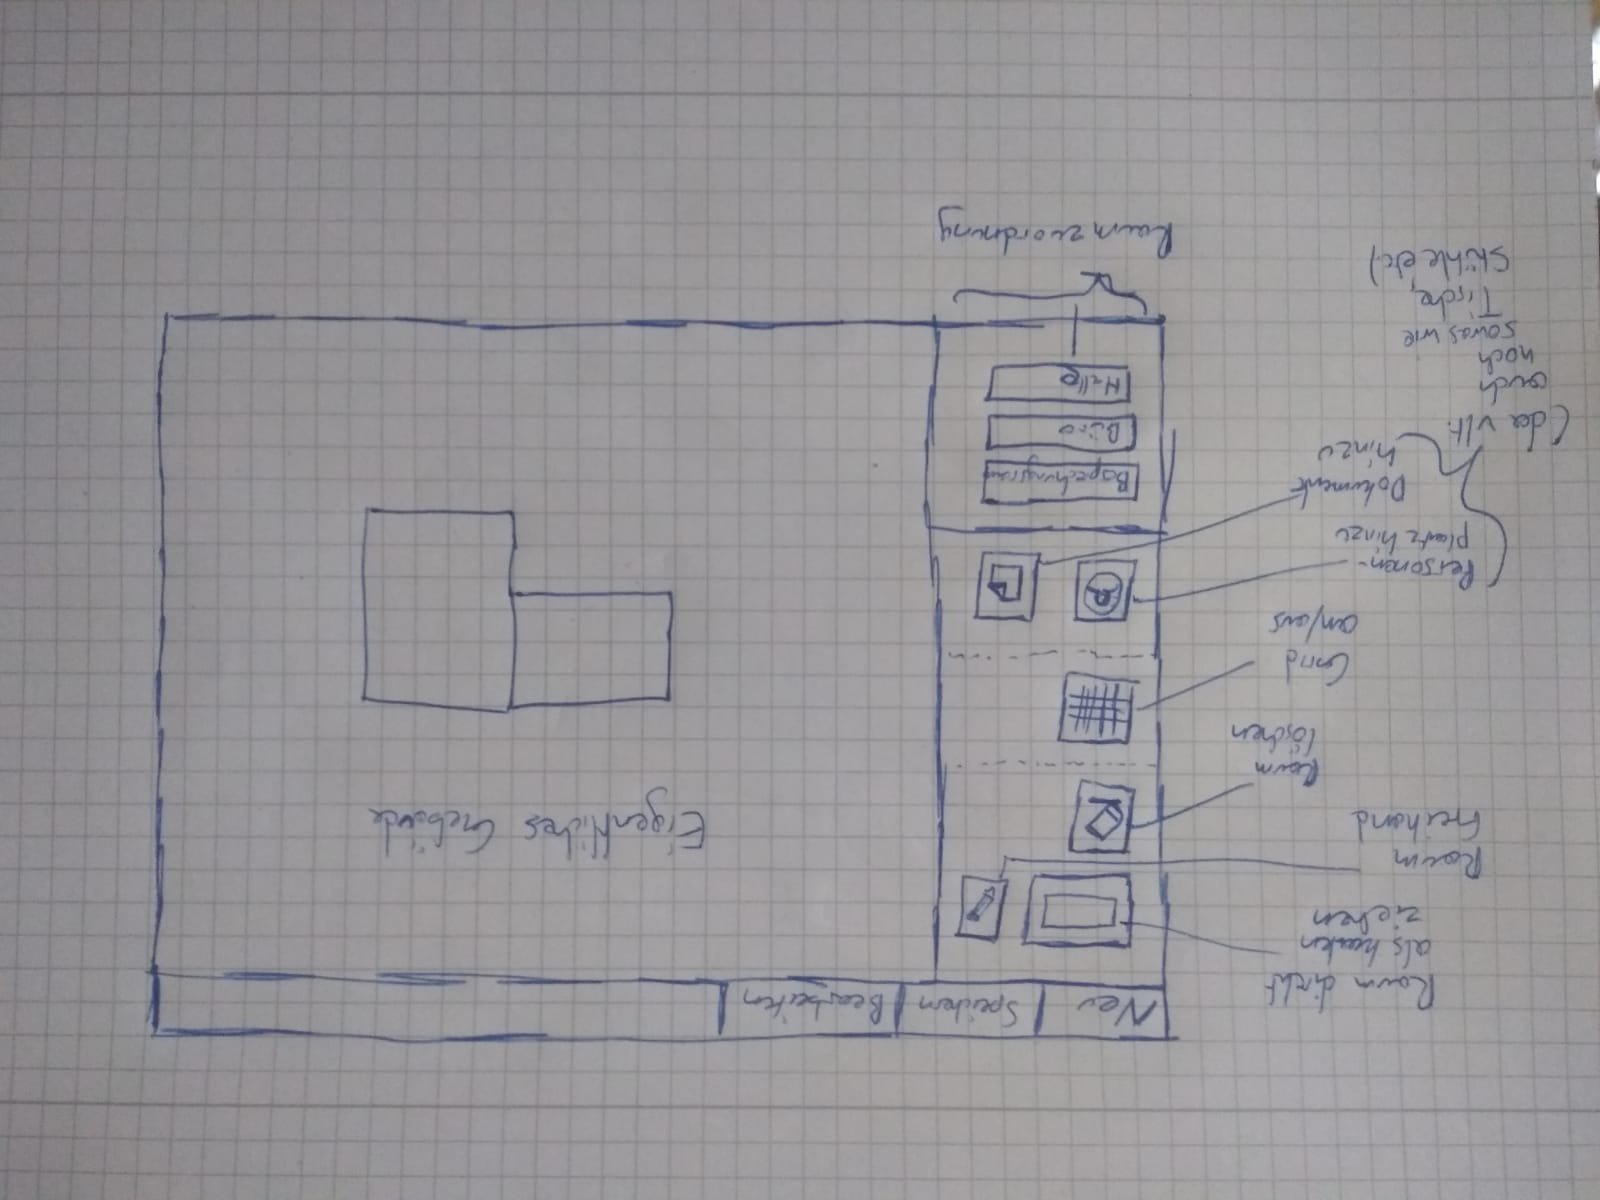 Neu
Speichern
Bearbeiten
Raum direkt
als
ziehen
Raum
Freihand
Raum
löschen
Grid
an/aus
Personen-
platz hinzu
Dokument
hinzu
(da vlt.
auch
noch
sowas wie
Tische,
Stühle etc.)
Eigentliches Gebäude
Büro
Halle
Raumzuordnung